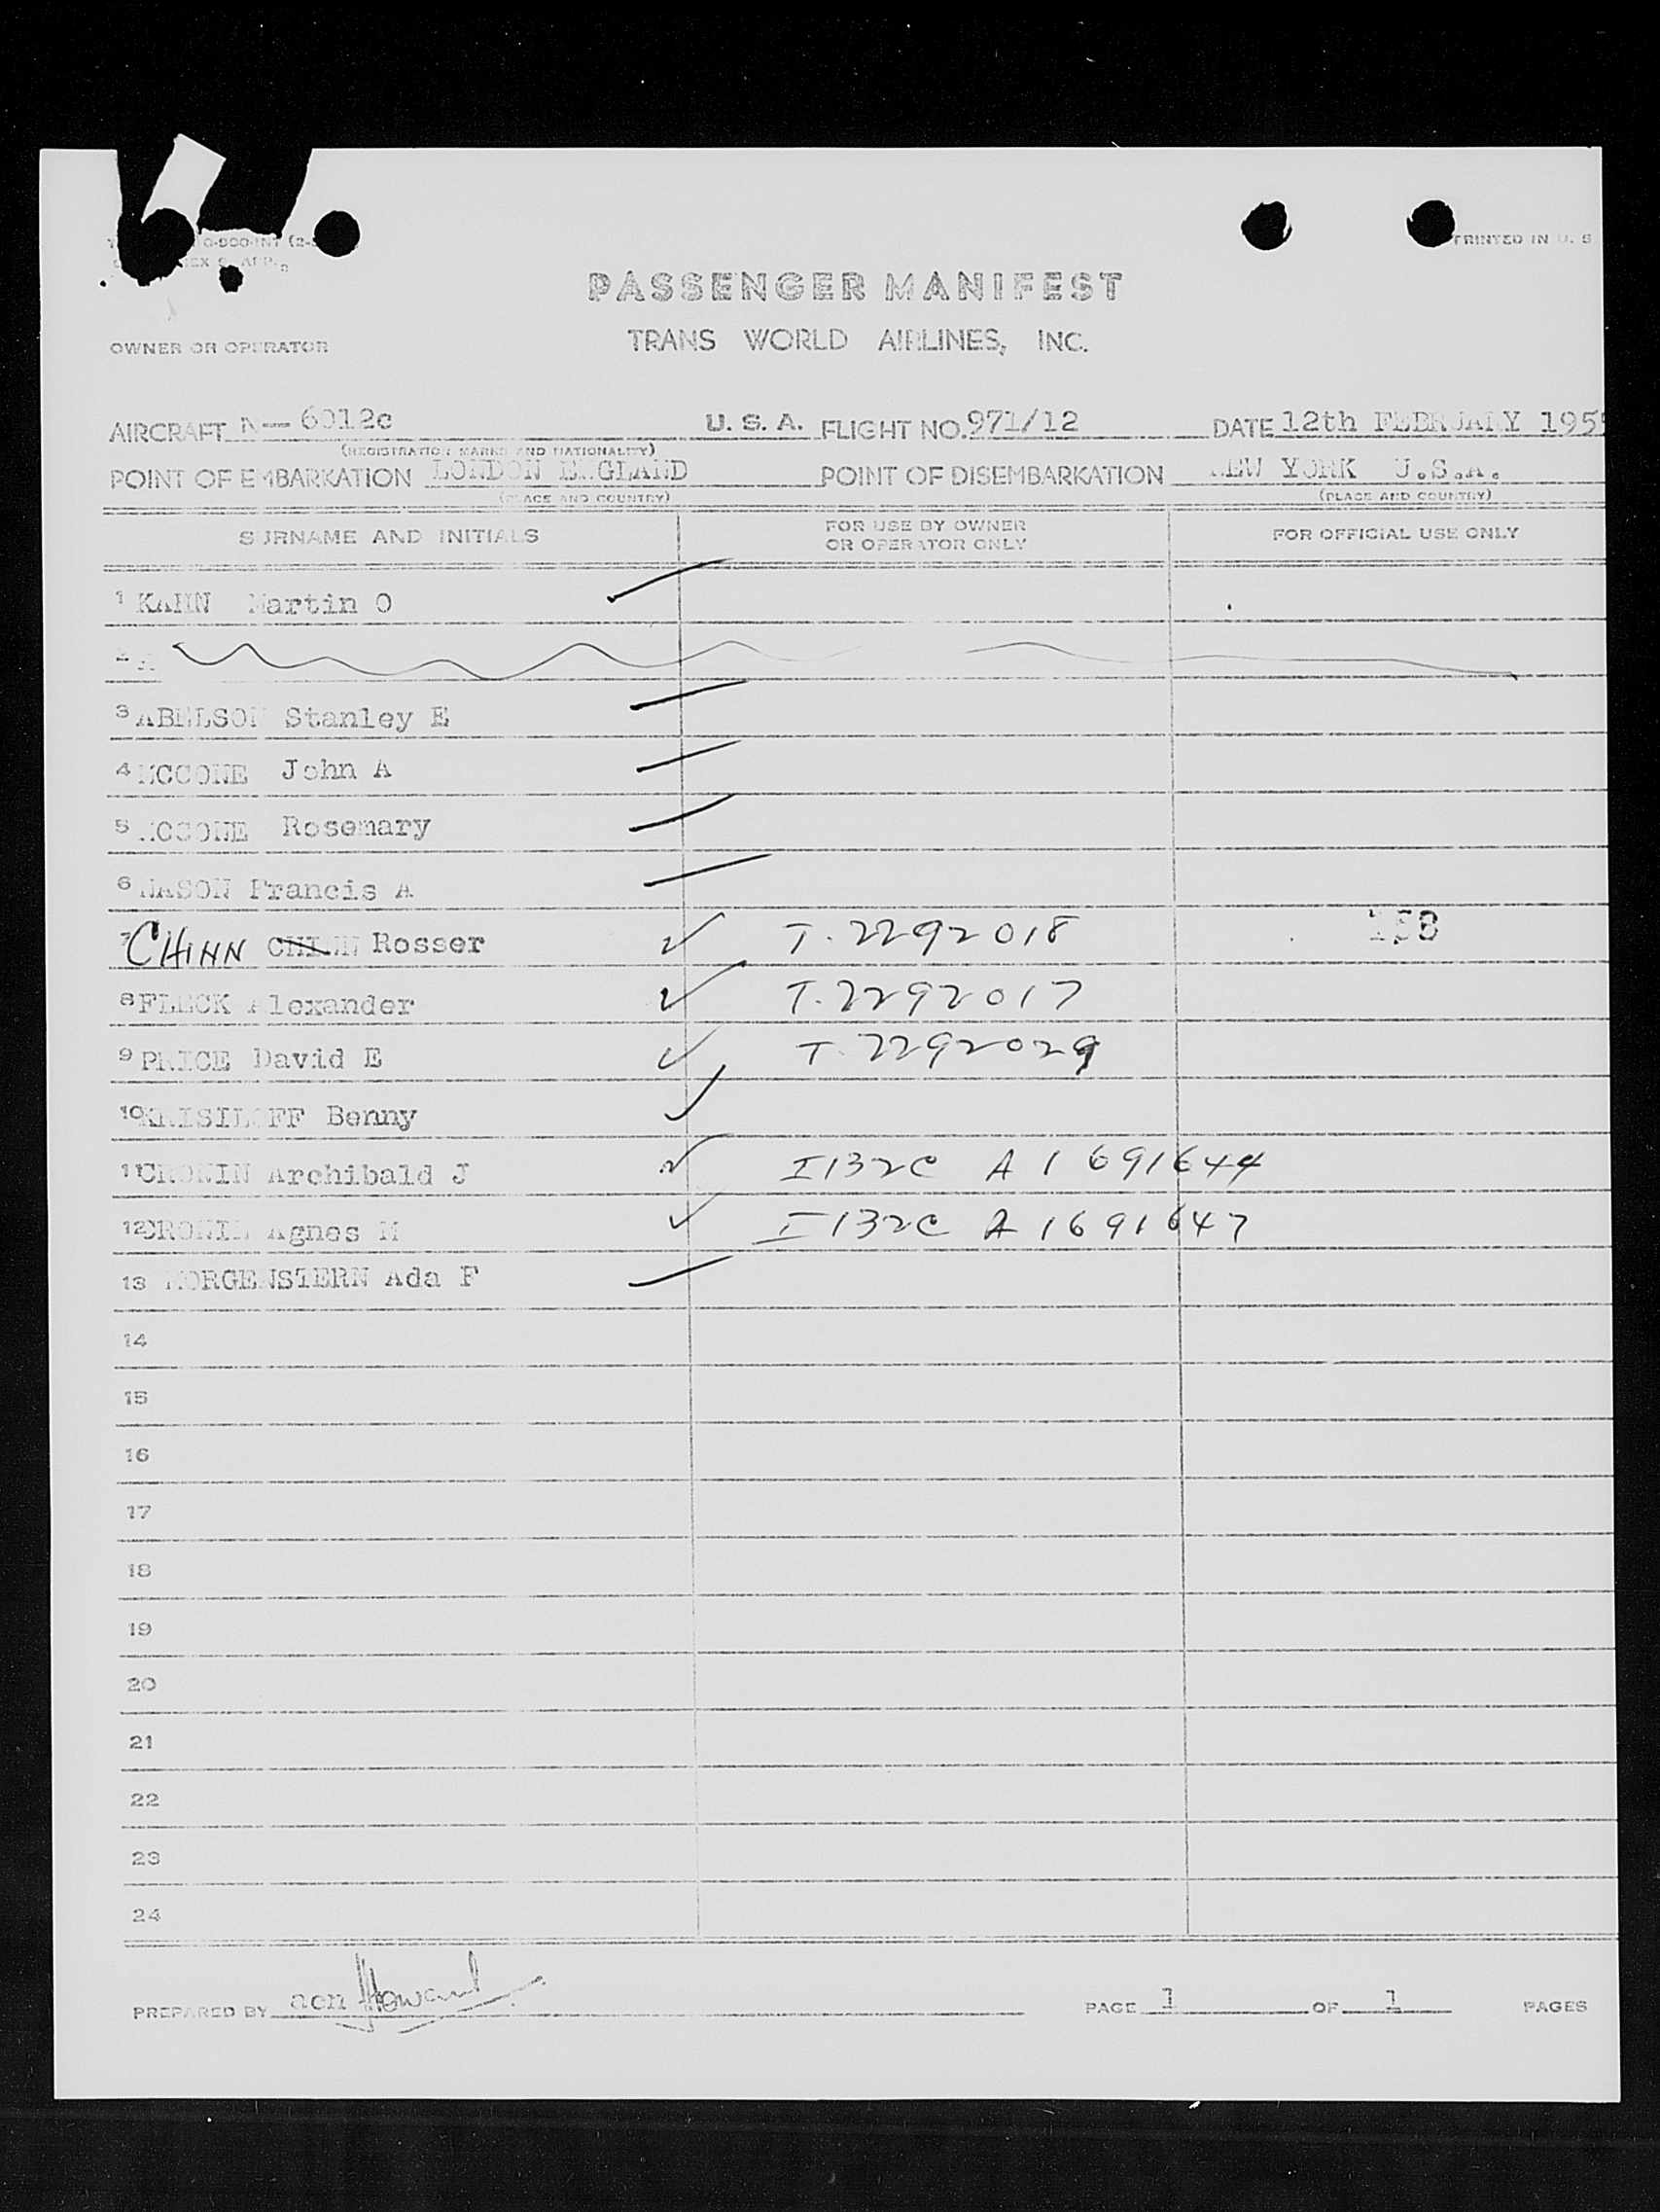 PRINTED IN U. S
PASSENGER MANIFEST
TRANS WORLD AIRLINES, INC.
OWNER OR OPERATOR
AIRCRAFT N— 6012c U. S. A. FLIGHT NO. 971/12 DATE 12th FEBRUARY 195
(REGISTRATION MARKS AND NATIONALITY)
POINT OF EMBARKATION LONDON ENGLAND POINT OF DISEMBARKATION NEW YORK U.S.A.
(PLACE AND COUNTRY) (PLACE AND COUNTRY)
SURNAME AND INITIALS FOR USE BY OWNER OR OPERATOR ONLY FOR OFFICIAL USE ONLY
1 KAHN Martin O
2
3 ABELSON Stanley E
4 MCCONE John A
5 MCCONE Rosemary
6 NASON Francis A
7 CHINN Rosser T. 2292018 158
8 FLECK Alexander T. 2292017
9 PRICE David E T. 2292029
10 KRISILOFF Benny
11 CRONIN Archibald J I132C A1691644
12 CRONIN Agnes M I132C A1691647
13 MORGENSTERN Ada F
14
15
16
17
18
19
20
21
22
23
24
PREPARED BY acn Howard PAGE 1 OF 1 PAGES